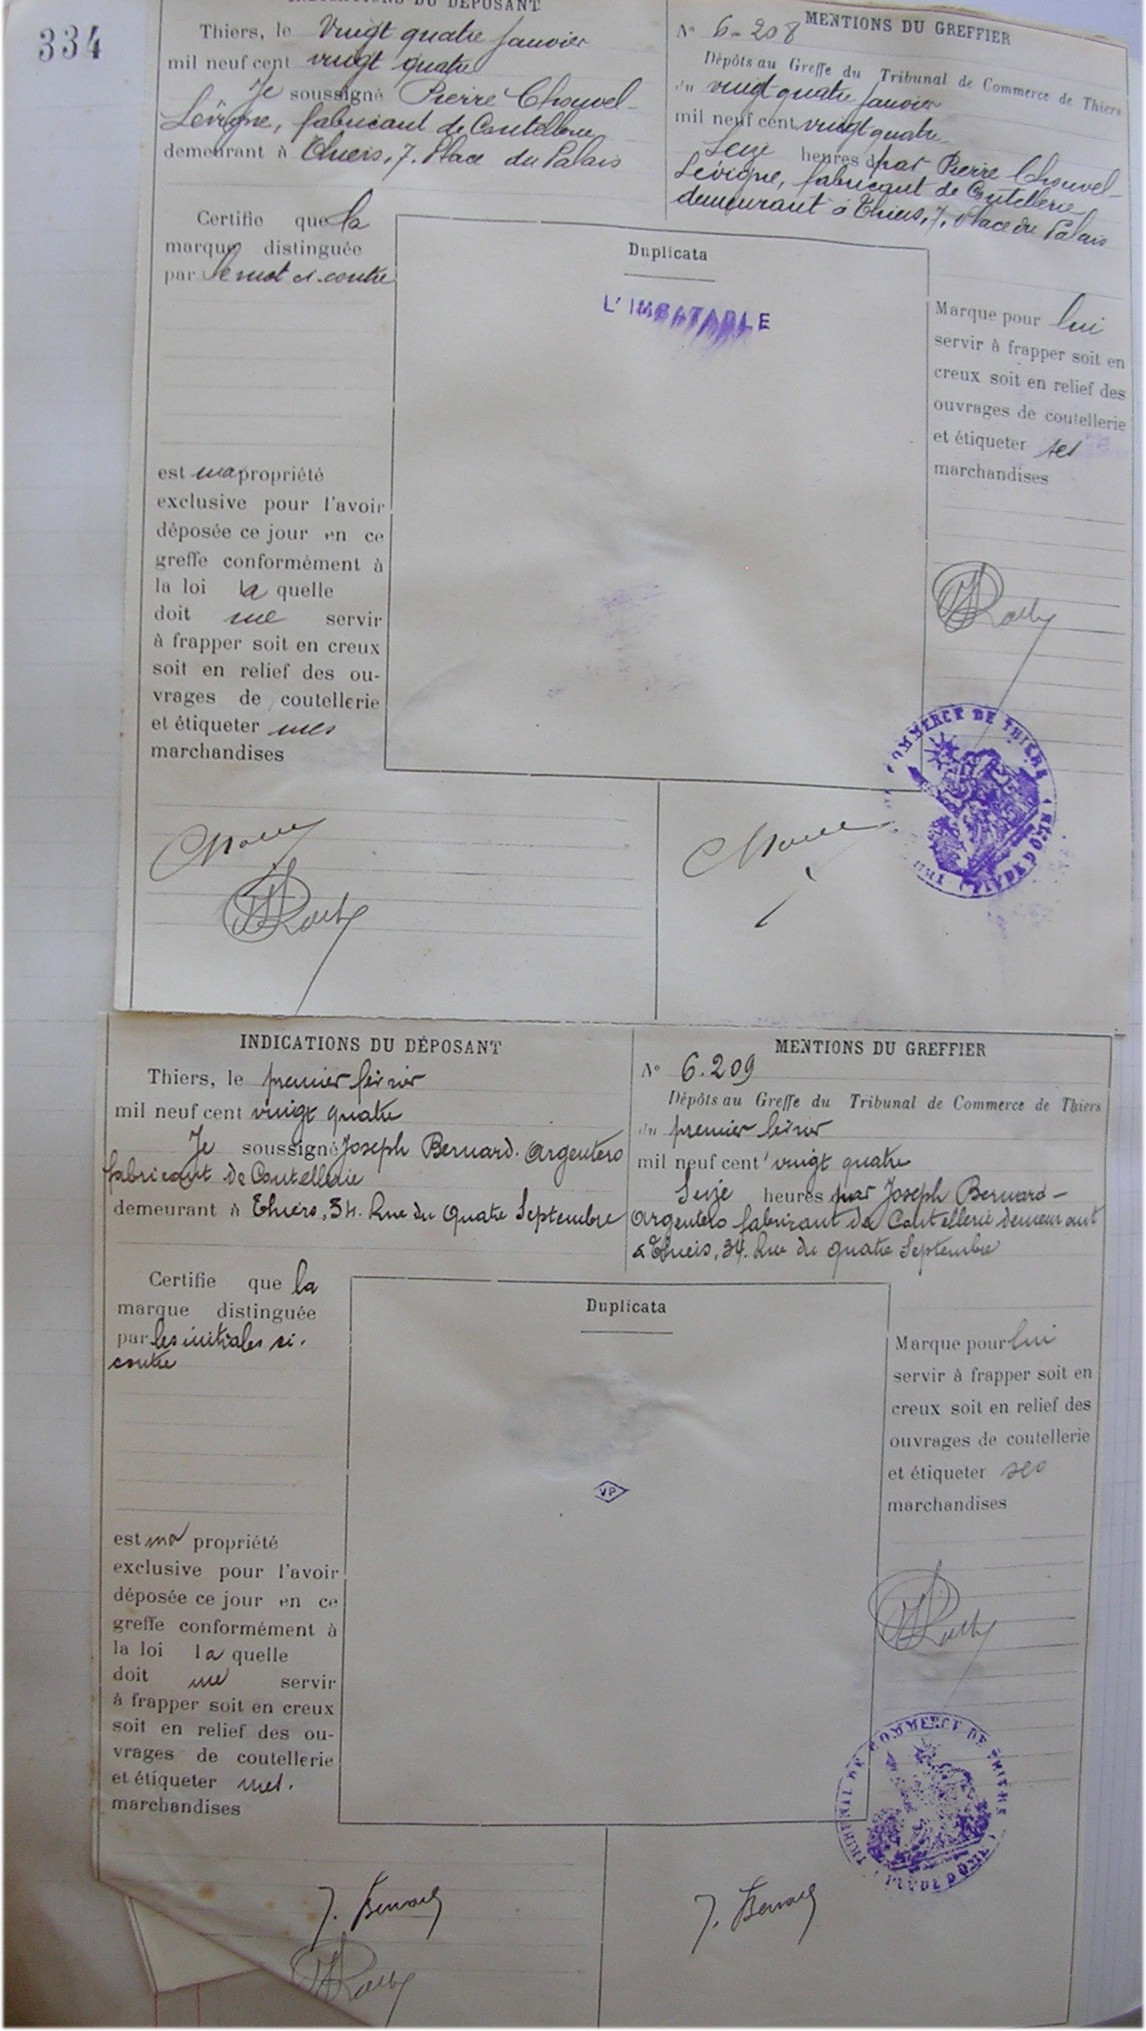 334
INDICATIONS DU DÉPOSANT
Thiers, le Vingt quatre Janvier
mil neuf cent vingt quatre
Je soussigné Pierre Chouvel-
Lévigne, fabricant de Coutellerie
demeurant à Thiers, 7. Place du Palais
MENTIONS DU GREFFIER
N° 6-208
Dépôts au Greffe du Tribunal de Commerce de Thiers
du vingt-quatre Janvier
mil neuf cent vingt quatre
Seize heures par Pierre Chouvel-
Lévigne, fabricant de Coutellerie
demeurant à Thiers, 7, Place du Palais
Certifie que la
marque distinguée
par le mot ci-contre
est ma propriété
exclusive pour l'avoir
déposée ce jour en ce
greffe conformément à
la loi la quelle
doit me servir
à frapper soit en creux
soit en relief des ou-
vrages de coutellerie
et étiqueter mes
marchandises
Duplicata
L'IMBATABLE
Marque pour lui
servir à frapper soit en
creux soit en relief des
ouvrages de coutellerie
et étiqueter ses
marchandises
COMMERCE DE THIERS
(PUY DE DÔME)
INDICATIONS DU DÉPOSANT
Thiers, le premier février
mil neuf cent vingt quatre
Je soussigné Joseph Bernard-Argentero
fabricant de Coutellerie
demeurant à Thiers, 34. Rue du Quatre Septembre
MENTIONS DU GREFFIER
N° 6.209
Dépôts au Greffe du Tribunal de Commerce de Thiers
du premier février
mil neuf cent vingt quatre
Seize heures par Joseph Bernard-
Argentero fabricant de Coutellerie demeurant
à Thiers, 34. Rue du Quatre Septembre
Certifie que la
marque distinguée
par les initiales ci-
contre
est ma propriété
exclusive pour l'avoir
déposée ce jour en ce
greffe conformément à
la loi la quelle
doit me servir
à frapper soit en creux
soit en relief des ou-
vrages de coutellerie
et étiqueter mes.
marchandises
Duplicata
VP
Marque pour lui
servir à frapper soit en
creux soit en relief des
ouvrages de coutellerie
et étiqueter ses
marchandises
TRIBUNAL DE COMMERCE DE THIERS
(PUY DE DÔME)
J. Bernard
J. Bernard